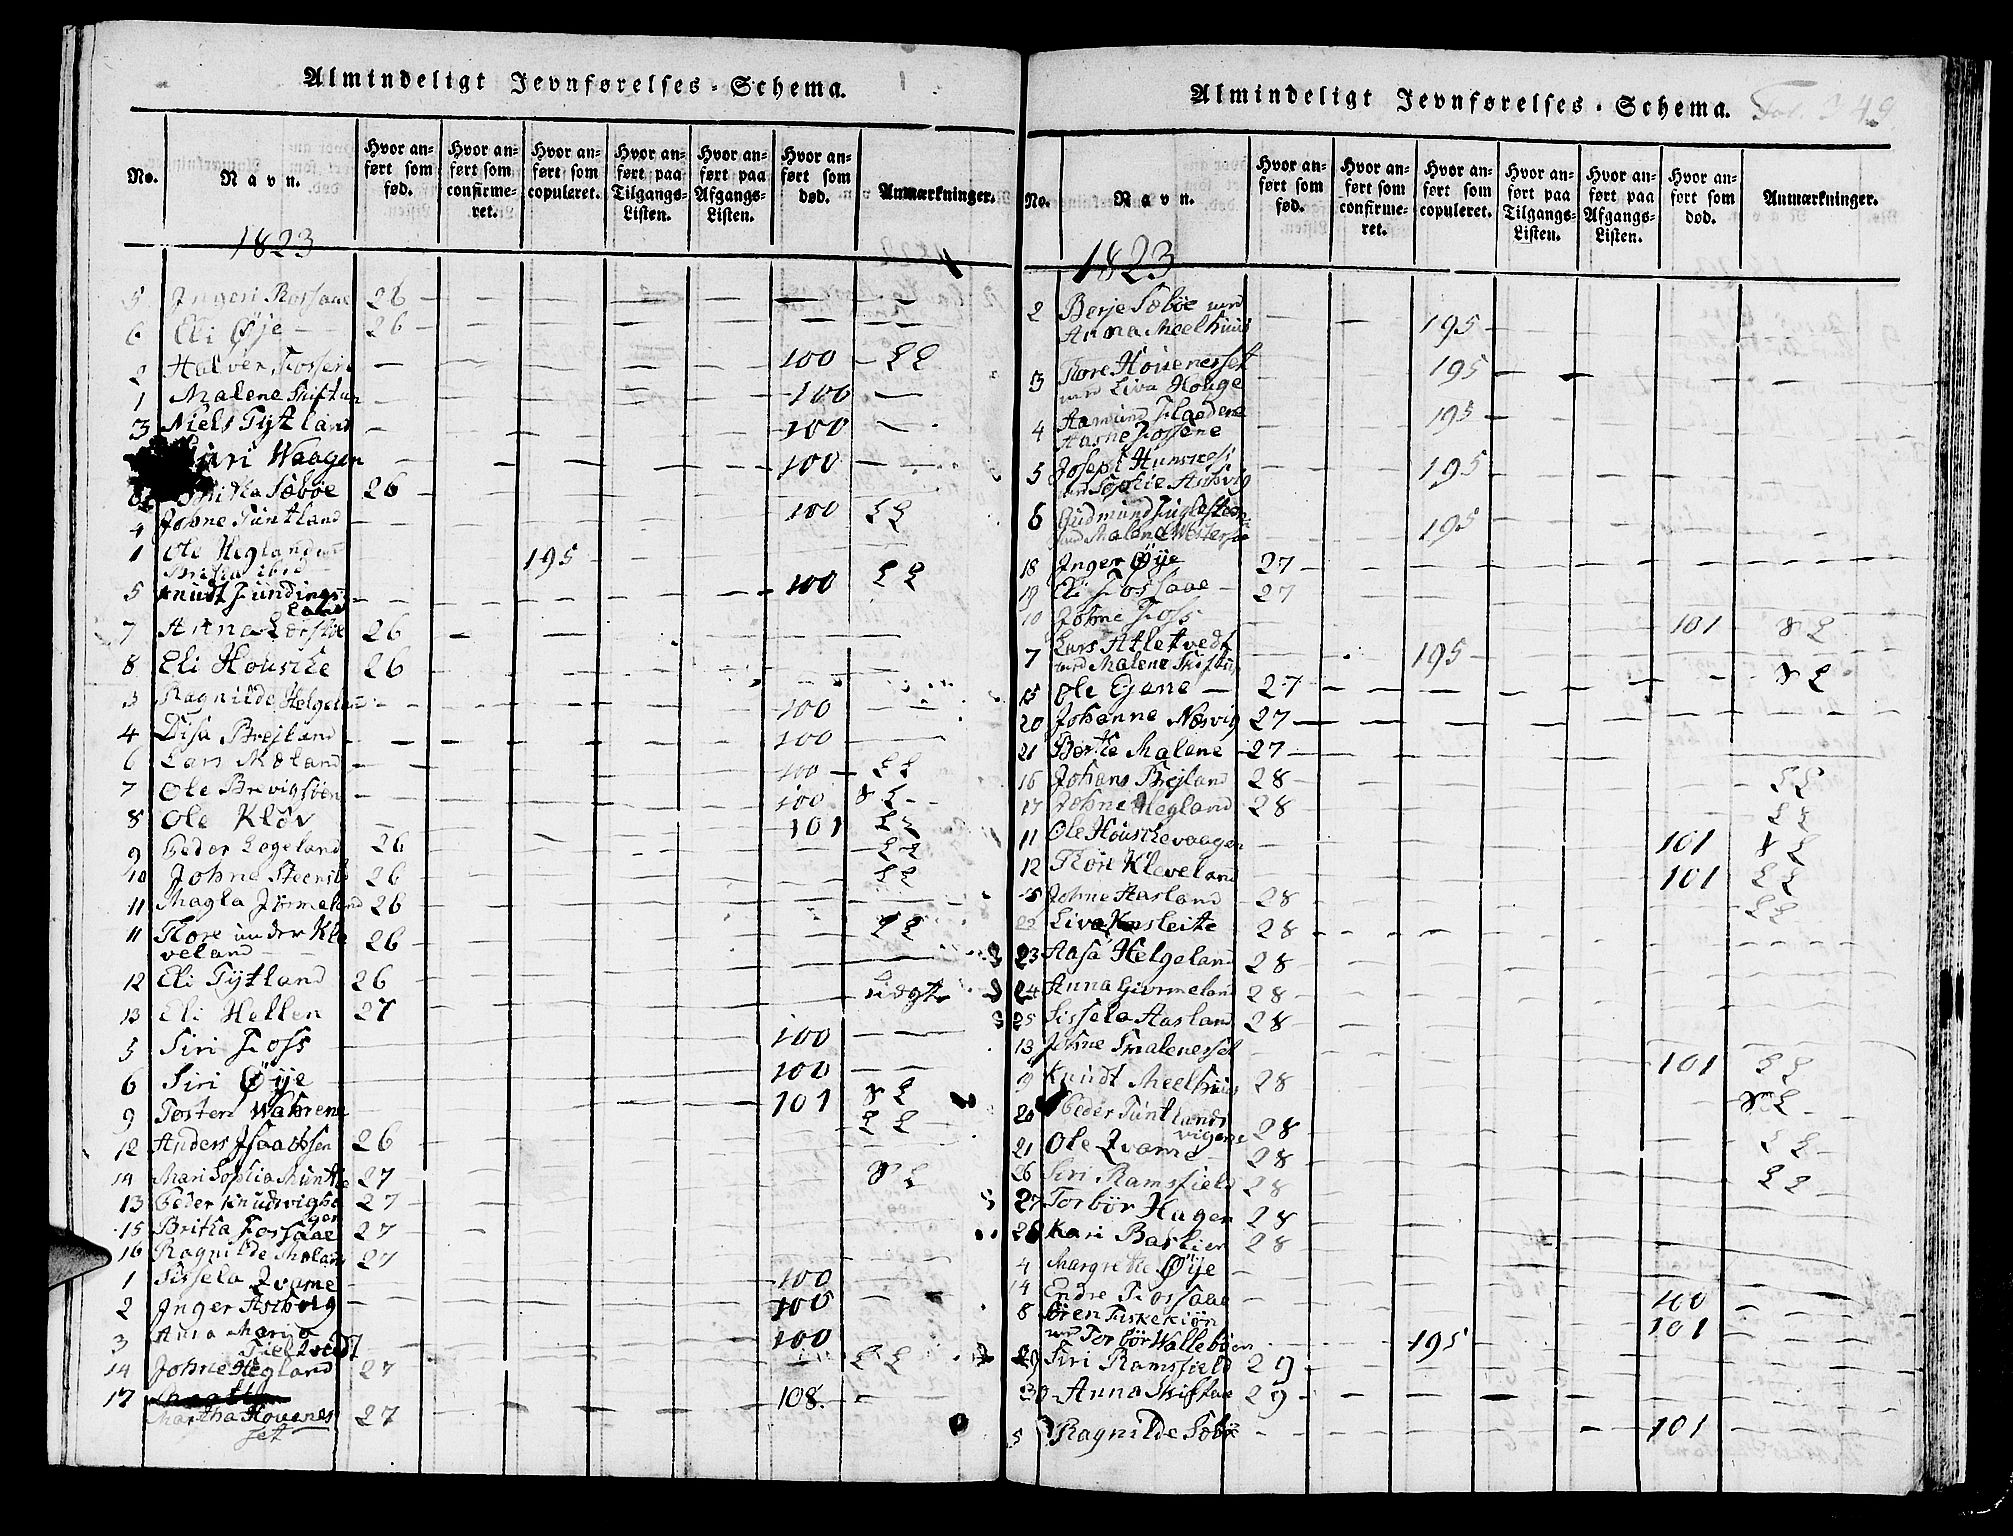 Almindeligt Jevnførelses-Schema.
No. Navn. Hvor anført som fød. Hvor anført som confirmeret. Hvor anført som copuleret. Hvor anført paa Tilgangs-Listen. Hvor anført paa Afgangs-Listen. Hvor anført som død. Anmærkninger.
1823
5 Ingeri Fossaae 26
6 Eli Øije 26
2 Halvor Fossene 100
1 Malene Skiftun 100
3 Niels Tÿtland 100
Siri Waagen 100
Sæbøe 26
4 Johne Tuntland 100
1 Ole Hegland 195
Britha ibid
5 Knudt Fundings
Land 100
7 Anna 26
8 Eli Houske 26
3 Ragnilde Helgeland 100
4 Disa Brejland 100
6 Lars Mæland 100
7 Ole Brevigsøen 100
8 Ole Kløv 101
9 Peder Legeland 26
10 Johne Steensto 26
11 Magla Jørmeland 26
11 Thore under Kle
veland 26
12 Eli Tÿtland 26
13 Eli Hellen 27
5 Siri Foss 100
6 Siri Øije 100
9 Tosten Wahrene 101
12 Anders Isaachsen 26
14 Mari Sophia Munthe 27
13 Peder Knudsvigsø
gen 27
15 Britha Fossaae 27
16 Ragnilde Mæland 27
1 Sissela Qvame 100
2 Inger Aschvig 100
3 Anna Maria
100
14 Johne Hegland 27
17 108
Martha Houenes
set 27
Almindeligt Jevnførelses-Schema. Fol. 349
No. Navn. Hvor anført som fød. Hvor anført som confirmeret. Hvor anført som copuleret. Hvor anført paa Tilgangs-Listen. Hvor anført paa Afgangs-Listen. Hvor anført som død. Anmærkninger.
1823
2 Børje Sæbøe und
Anna Meelhuus 195
3 Thore Houenesset
und Liva Houge 195
4 Aamund
Aasne Fossene 195
5 Joseph
und Sophie Aschvig 195
6 Gudmund
und Malena 195
18 Inger Øije 27
19 Eli Fossaae 27
10 Johne Foss 101
7 Lars Atletvedt
und Malene Skiftun 195
15 Ole Ejene 27
20 Johanne Næsvig 27
21 Berte Malene 27
16 Johans Brejland 28
17 Johne Hegland 28
11 Ole Houschevaagen 101
12 Thore Kleveland 101
Johne Aasland 28
22 Liva 28
23 Aasa Helgeland 28
24 Anna Giormeland 28
25 Sissela Aasland 28
13 Johne Smalenesset 101
19 Knudt Meelhuus 28
20 Peder Tuntlands
vigene 28
21 Ole Qvame 28
26 Siri Ramsfield 28
27 Torbør Hagen 28
28 Kari Baskier 28
4 Margrethe Øije
14 Endre Fossaae 100
8 Øren Fiskekiøn 101
und Torbør Wallebøen 195
29 Siri Ramsfield 29
30 Anna Skiftun 29
5 Ragnilde Søbø 101